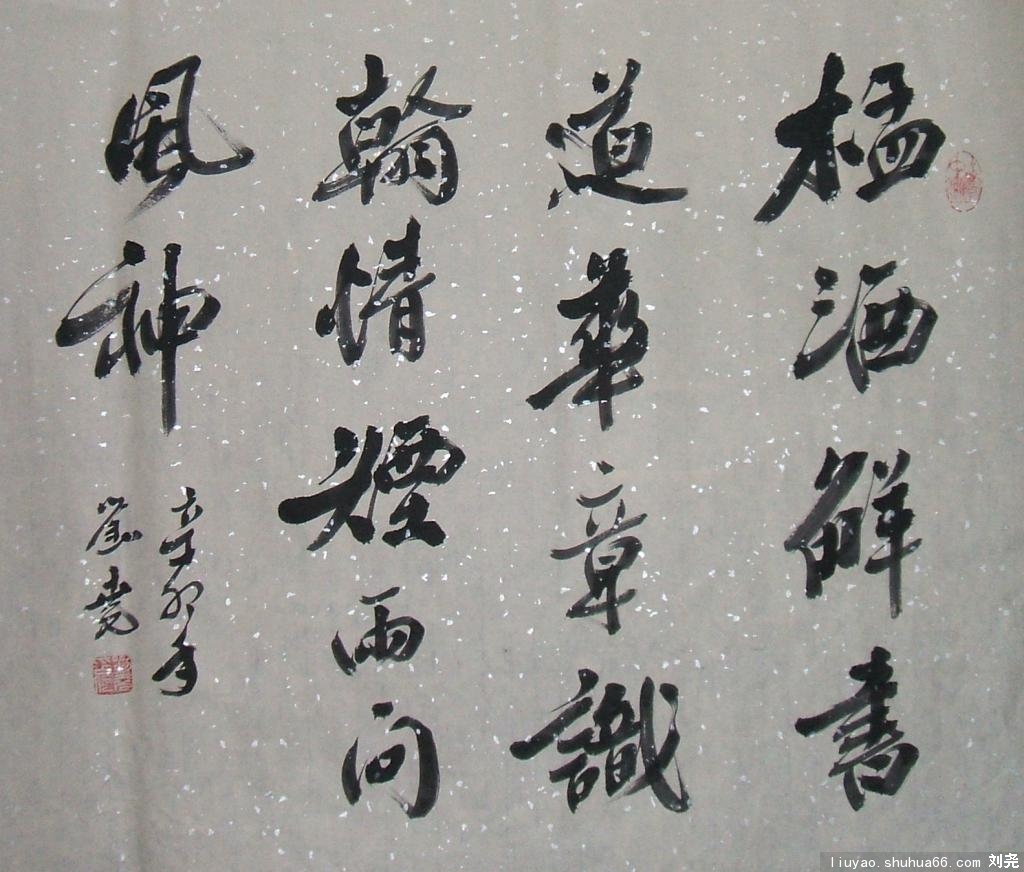 楹洒觧書
道華章識
翰情煙雨問
風神
辛卯年
劉堯
liuyao.shuhua66.com 刘尧